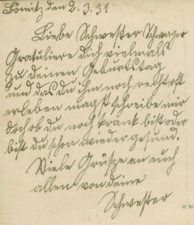 Bönitz den 2.3.31
Liebe Schwester Schwager
Gratuliere dich vielmals
zu deinen Geburtstag
und das du ihn noch recht oft
erleben magst schreibe mir
doch ob du noch krank bist oder
bist du schon wieder gesund.
Viele Grüße an euch
allen von deine
Schwester